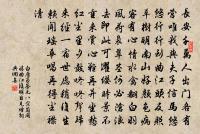 長安千萬人出門各有
營唯我與夫子信馬悠
悠行行到曲江頭反照
草樹明南山好顏色病
客有心情水禽翻白羽
風荷裊翠莖何必滄浪
去即此可濯纓時景不
重來賞心難再并坐愁
紅塵里夕鼓冬冬聲歸
來經一宿世慮稍復生
賴聞瑤華唱再得塵襟
清
白居易答元八宗簡同遊
曲江後明日見贈詩